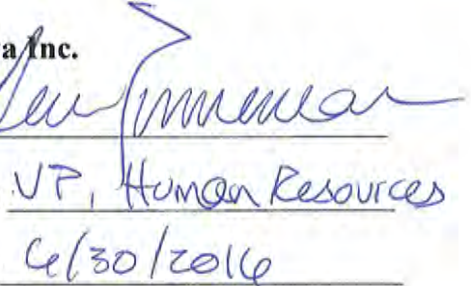 a Inc.
VP, Human Resources
6/30/2016